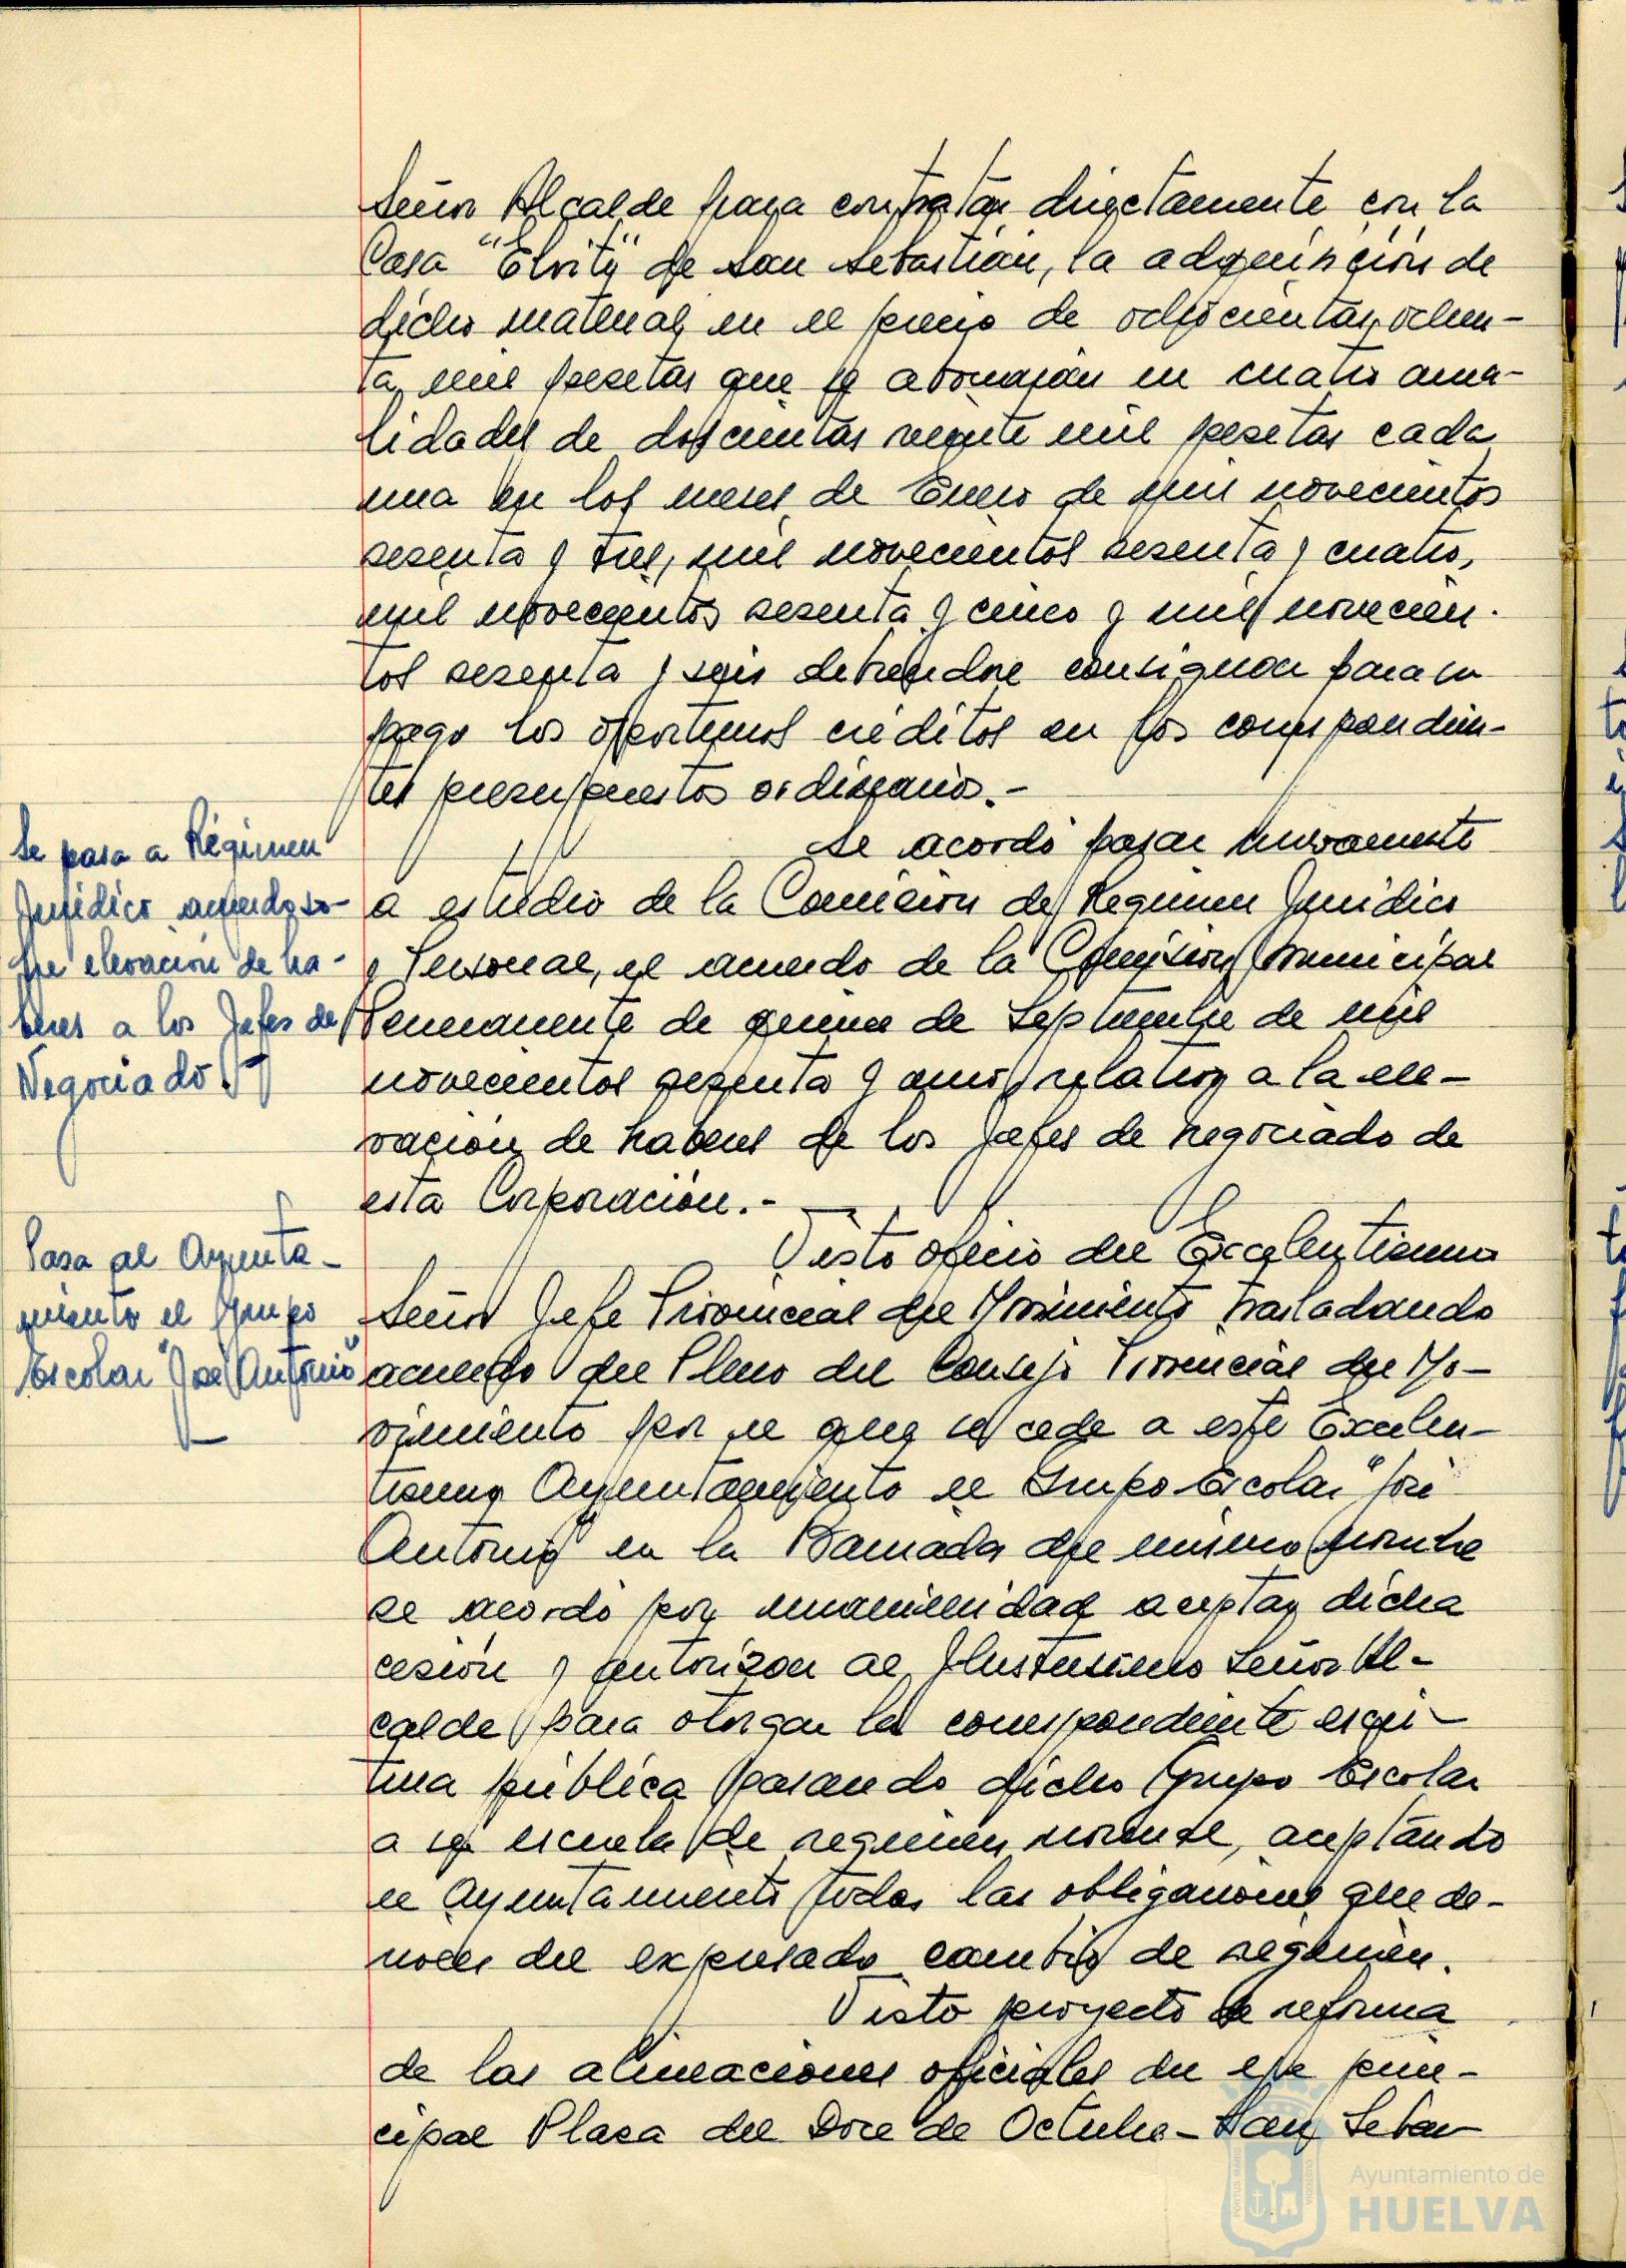 Señor Alcalde para contratar directamente con la
Casa "Elvity" de San Sebastián, la adquisición de
dicho material en el precio de ochocientas ochen-
ta mil pesetas que se abonarán en cuatro anua-
lidades de doscientas veinte mil pesetas cada
una en los meses de Enero de mil novecientos
sesenta y tres, mil novecientos sesenta y cuatro,
mil novecientos sesenta y cinco y mil novecien-
tos sesenta y seis debiendose consignar para su
pago los oportunos créditos en los correspondien-
tes presupuestos ordinarios.-
Se pasa a Régimen
Jurídico acuerdo so-
bre elevación de ha-
beres a los Jefes de
Negociado.
Se acordó pasar nuevamente
a estudio de la Comisión de Regimen Juridico
y Personal, el acuerdo de la Comisión Municipal
Permanente de quince de Septiembre de mil
novecientos sesenta y uno, relativo a la ele-
vación de haberes de los Jefes de negociado de
esta Corporación.-
Pasa al Ayunta-
miento el Grupo
Escolar "José Antonio"
Visto oficio del Excelentisimo
Señor Jefe Provincial del Movimiento trasladando
acuerdo del Pleno del Consejo Provincial del Mo-
vimiento por el que se cede a este Excelen-
tisimo Ayuntamiento el Grupo Escolar "José
Antonio" en la Barriada del mismo nombre
se acordó por unanimidad aceptar dicha
cesión y autorizar al Ilustrisimo Señor Al-
calde para otorgar la correspondiente escri-
tura pública pasando dicho Grupo Escolar
a ser escuela de regimen normal, aceptando
el Ayuntamiento todas las obligaciones que de-
rivan del expresado cambio de régimen.
Visto proyecto de reforma
de las alineaciones oficiales del eje prin-
cipal Plaza del Doce de Octubre - San Sebas-
Ayuntamiento de
HUELVA